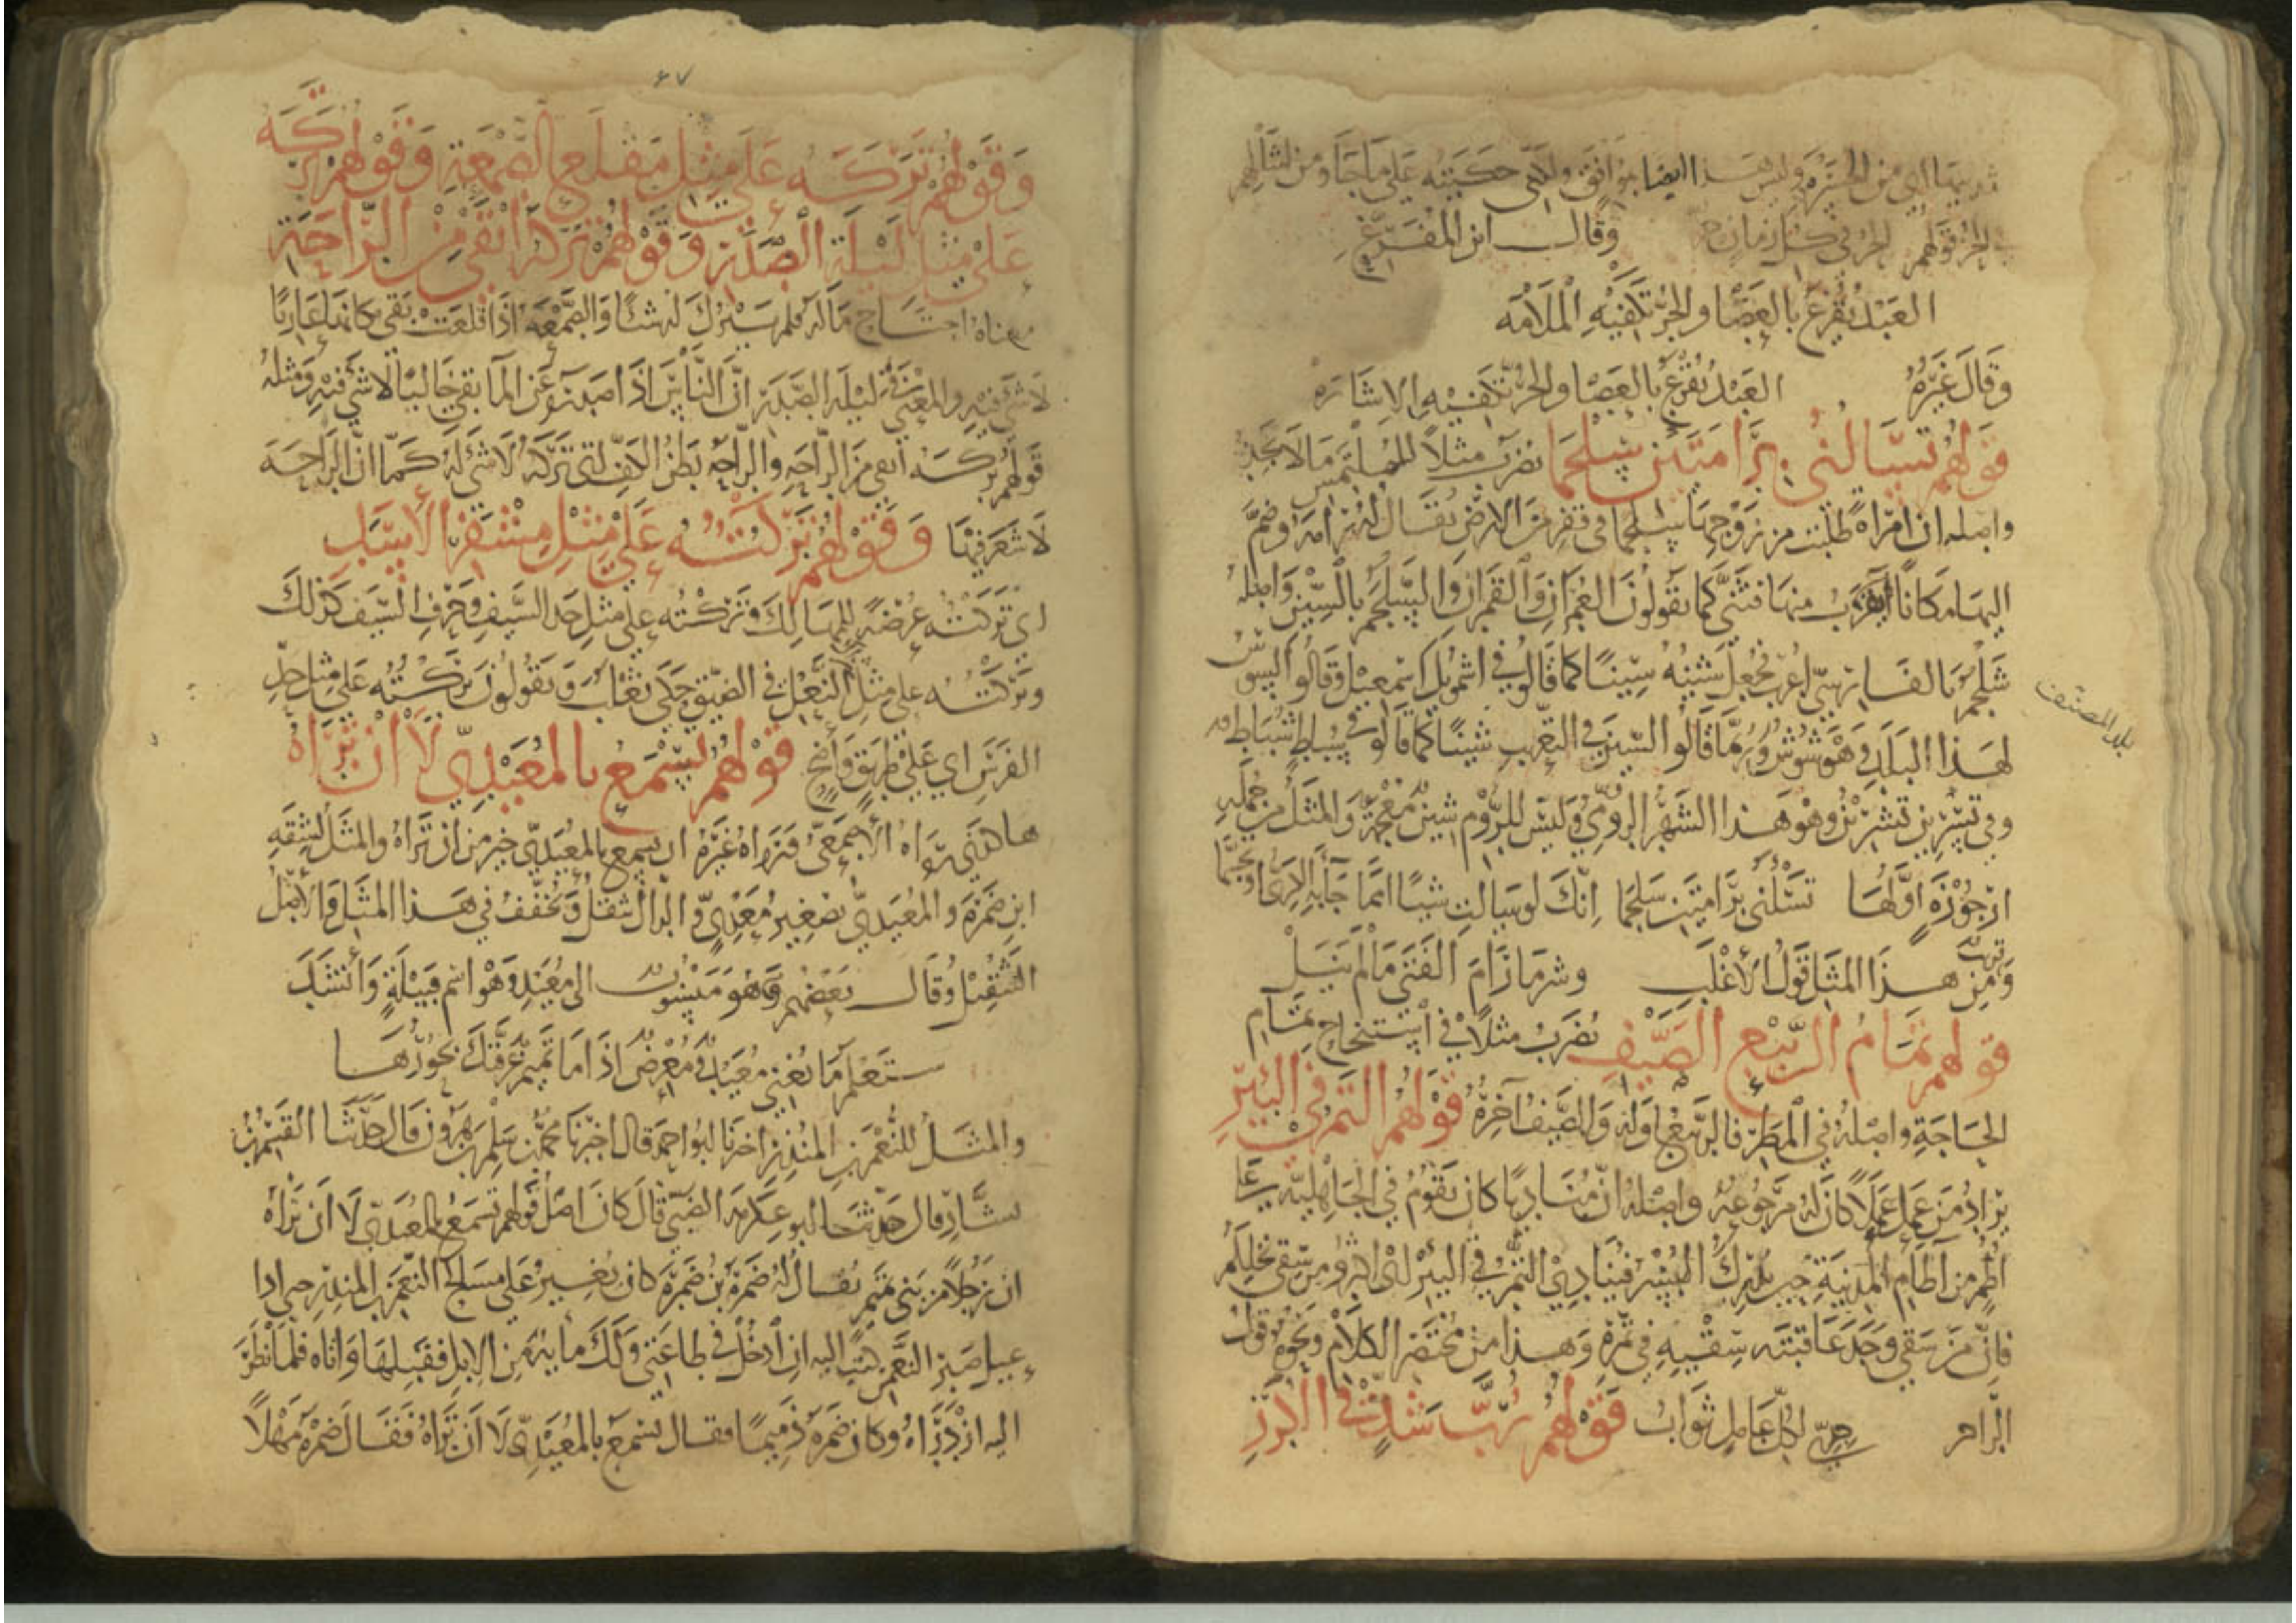 وقال ابن المفرغ
العبد يقرع بالعصا والحر تكفيه الملامه
وقال غيره العبد يقرع بالعصا والحر تكفيه الاشاره
قولهم تسالني برامتين سلجما يضرب مثلا للملتمس ما لا يجد
واصله ان امراة طلبت من زوجها سلجما في قفر من الارض يقال له رامة وضم
اليها مكانا يقرب منها فثنى كما يقولون العمران والقمران والسلجم بالسين واصله
شلجم بالفارسية اعرب فجعل شينه سينا كما قالوا في اشمويل اسمعيل وقالوا السوس
لهذا البلد وهو شوش وربما قالوا السين في التعريب شينا كما قالوا في سباط شباط
بلد المصنف
وفي تسرين تشرين وهو هذا الشهر الرومي وليس للروم شين معجمة والمثل من جملة
ارجوزة اولها تسئلني برامتين سلجما انك لو سالت شيئا امما جاء به الكري او تجشما
ومن هذا المثل قول الاغلب وشر ما رام الفتى ما لم ينل
قولهم تمام الربيع الصيف يضرب مثلا في استنجاح تمام
الحاجة واصله في المطر فالربيع اوله والصيف آخره قولهم التمر في البئر
يراد من عمل عملا كان له مرجوعه واصله ان مناديا كان يقوم في الجاهلية على
اطم من آطام المدينة حين يدرك البسر فينادي التمر في البئر اي اكثروا من سقي نخلكم
فان من سقى وجد عاقبته سقيه في تمره وهذا من مختصر الكلام ونحوه قول
الراجز لكل عامل ثواب قولهم رب شد في الكرز
٤٧
وقولهم تركه على مثل مقلع الصمغة وقولهم تركه
على مثل ليلة الصدر وقولهم تركه انقى من الراحة
معناه اجتاح ماله فلم يترك له شئا والصمغه اذا قلعت بقي مكانها عاريا
لا شئ فيه والمعنى في ليلة الصدر ان الناس اذا صدروا عن الما بقي خاليا لا شئ فيه ومثله
قولهم تركه انقى من الراحه والراحه بطن الكف اي تركه لا شئ له كما ان الراحه
لا شعر فيها وقولهم تركته على مثل مشفر الاسد
اي تركته عرضة للمهالك وتركته على مثل حد السيف وحرف السيف كذلك
وتركته على مثل النعل في الضيق ويقولون تركته على مثل خد
الفرس اي على طريق واضح قولهم تسمع بالمعيدي لا ان تراه
هاكذى رواه الاصمعي ورواه غيره ان تسمع بالمعيدي خير من ان تراه والمثل لشقه
ابن ضمرة والمعيدي تصغير معدي والدال تثقل وتخفف في هذا المثل والاصل
التثقيل وقال بعضهم وهو منسوب الى معيد وهو اسم قبيلة وانشد
ستعلم ما تغني معيد ومعرض اذا ما تميم غرقتك بحورها
والمثل للنعمن بن المنذر اخبرنا ابو احمد قال اخبرنا محمد بن سلم بن هرون قال حدثنا القسم بن
سيار قال حدثنا ابو عكرمة الضبي قال كان اصل قولهم تسمع بالمعيدي لا ان تراه
ان رجلا من بني تميم يقال له ضمرة بن ضمرة كان يغير على مسالح النعمن بن المنذر حتى اذا
عيل صبر النعمن كتب اليه ان ادخل في طاعتي ولك مائة من الابل فقبلها واتاه فلما نظر
اليه ازدراه وكان ضمرة ذميما فقال تسمع بالمعيدي لا ان تراه فقال ضمرة مهلا